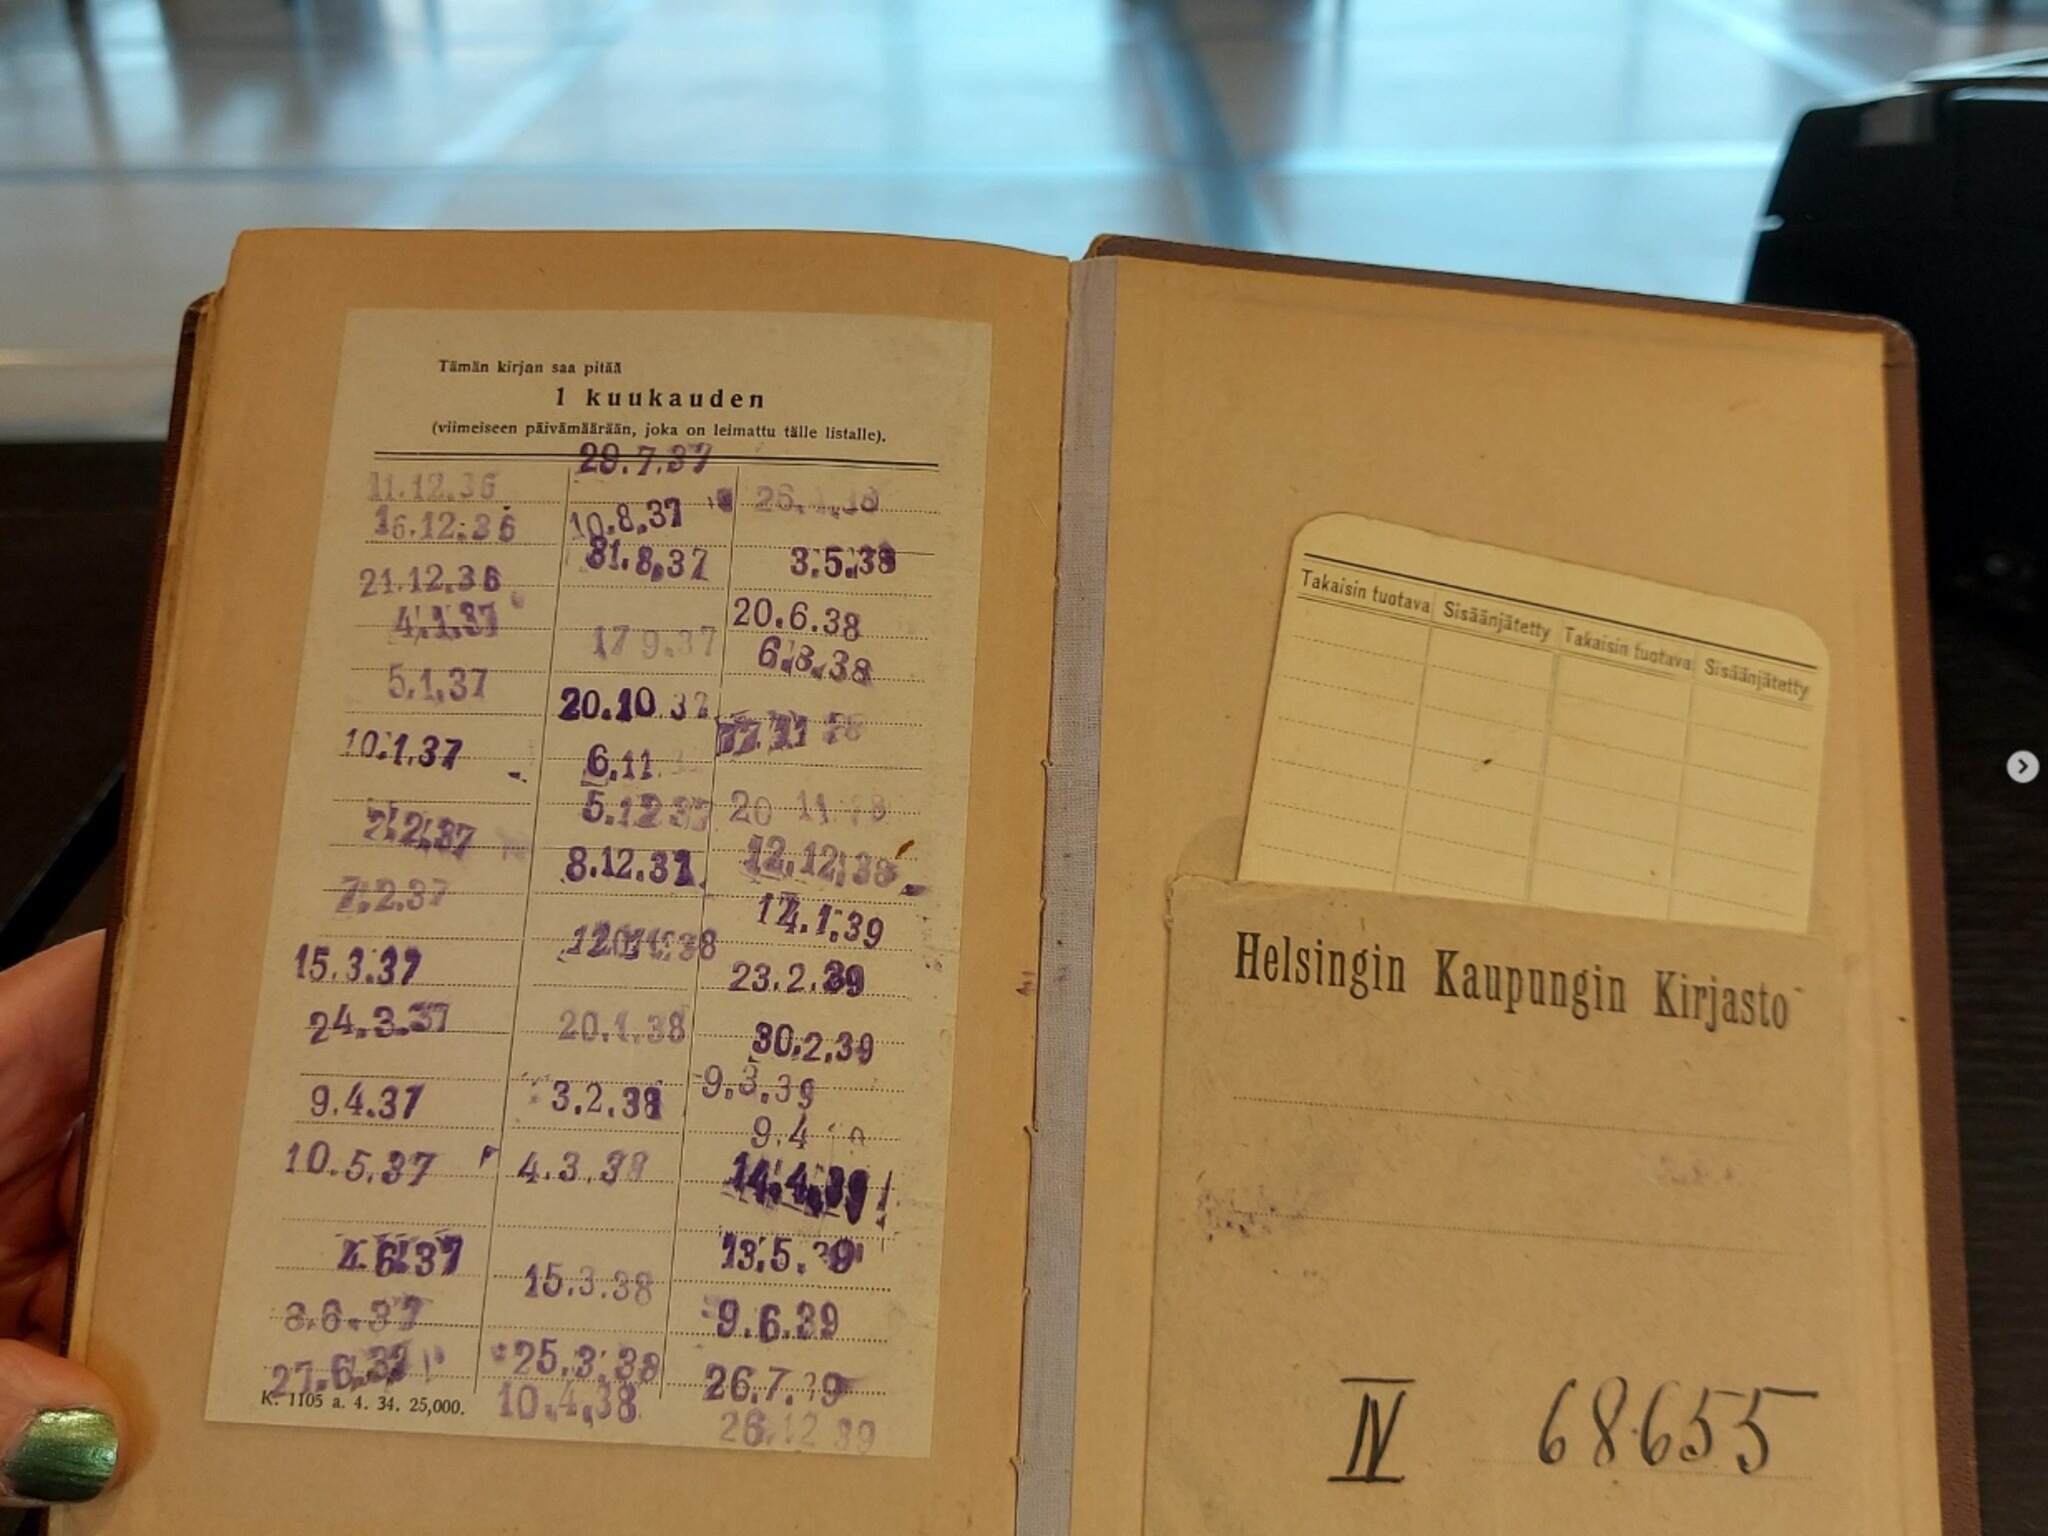 Tämän kirjan saa pitää
1 kuukauden
(viimeiseen päivämäärään, joka on leimattu tälle listalle).
11.12.36
16.12.36
21.12.36
4.1.37
5.1.37
10.1.37
2.2.37
7.2.37
15.3.37
24.3.37
9.4.37
10.5.37
4.6.37
8.6.37
27.6.37
K. 1105 a. 4. 34. 25,000.
29.7.37
10.8.37
31.8.37
17 9.37
20.10 37
6.11
5.12 37
8.12.37
20.1.38
3.2.38
4.3.38
15.3.38
25.3.38
10.4.38
3.5.38
20.6.38
6.8.38
20 11
12.12.38
14.1.39
23.2.39
30.2.39
9.3.39
9.4
14.4.39
13.5. 39
9.6.39
26.7.39
26.12 39
Takaisin tuotava Sisäänjätetty Takaisin tuotava Sisäänjätetty
Helsingin Kaupungin Kirjasto
IV 68655